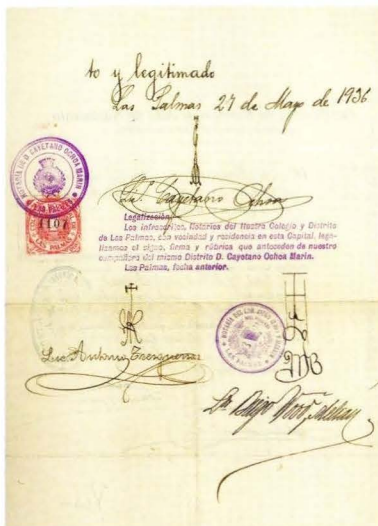 to y legitimado
Las Palmas 27 de Mayo de 1936
NOTARIA DE D. CAYETANO OCHOA MARIN
LAS PALMAS
1107
Lic. Cayetano Ochoa
Legalización:
Los infrascritos, Notarios del Ilustre Colegio y Distrito
de Las Palmas, con vecindad y residencia en esta Capital, lega-
lizamos el signo, firma y rúbrica que anteceden de nuestro
compañero del mismo Distrito D. Cayetano Ochoa Marin.
Las Palmas, fecha anterior.
Lic. Antonio